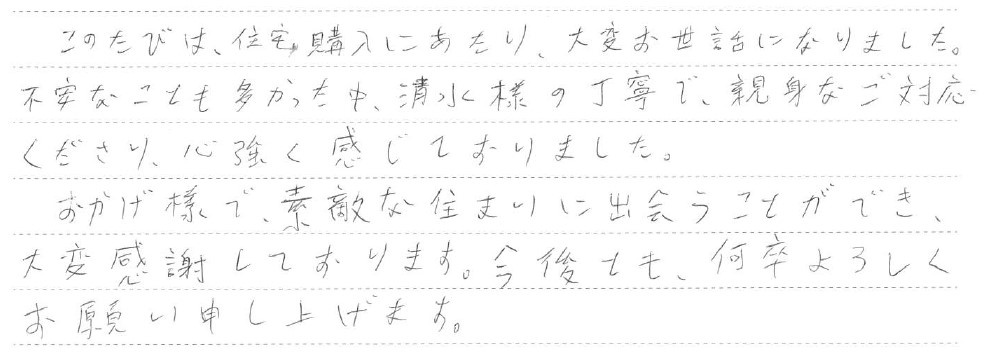 このたびは、住宅購入にあたり、大変お世話になりました。
不安なことも多かった中、清水様の丁寧で、親身なご対応
くださり、心強く感じておりました。
おかげ様で、素敵な住まいに出会うことができ、
大変感謝しております。今後とも、何卒よろしく
お願い申し上げます。